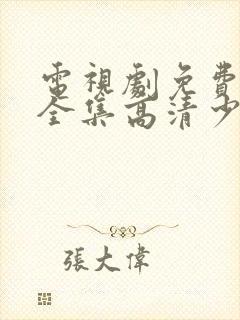 電視劇免費
全集高清少
張大偉